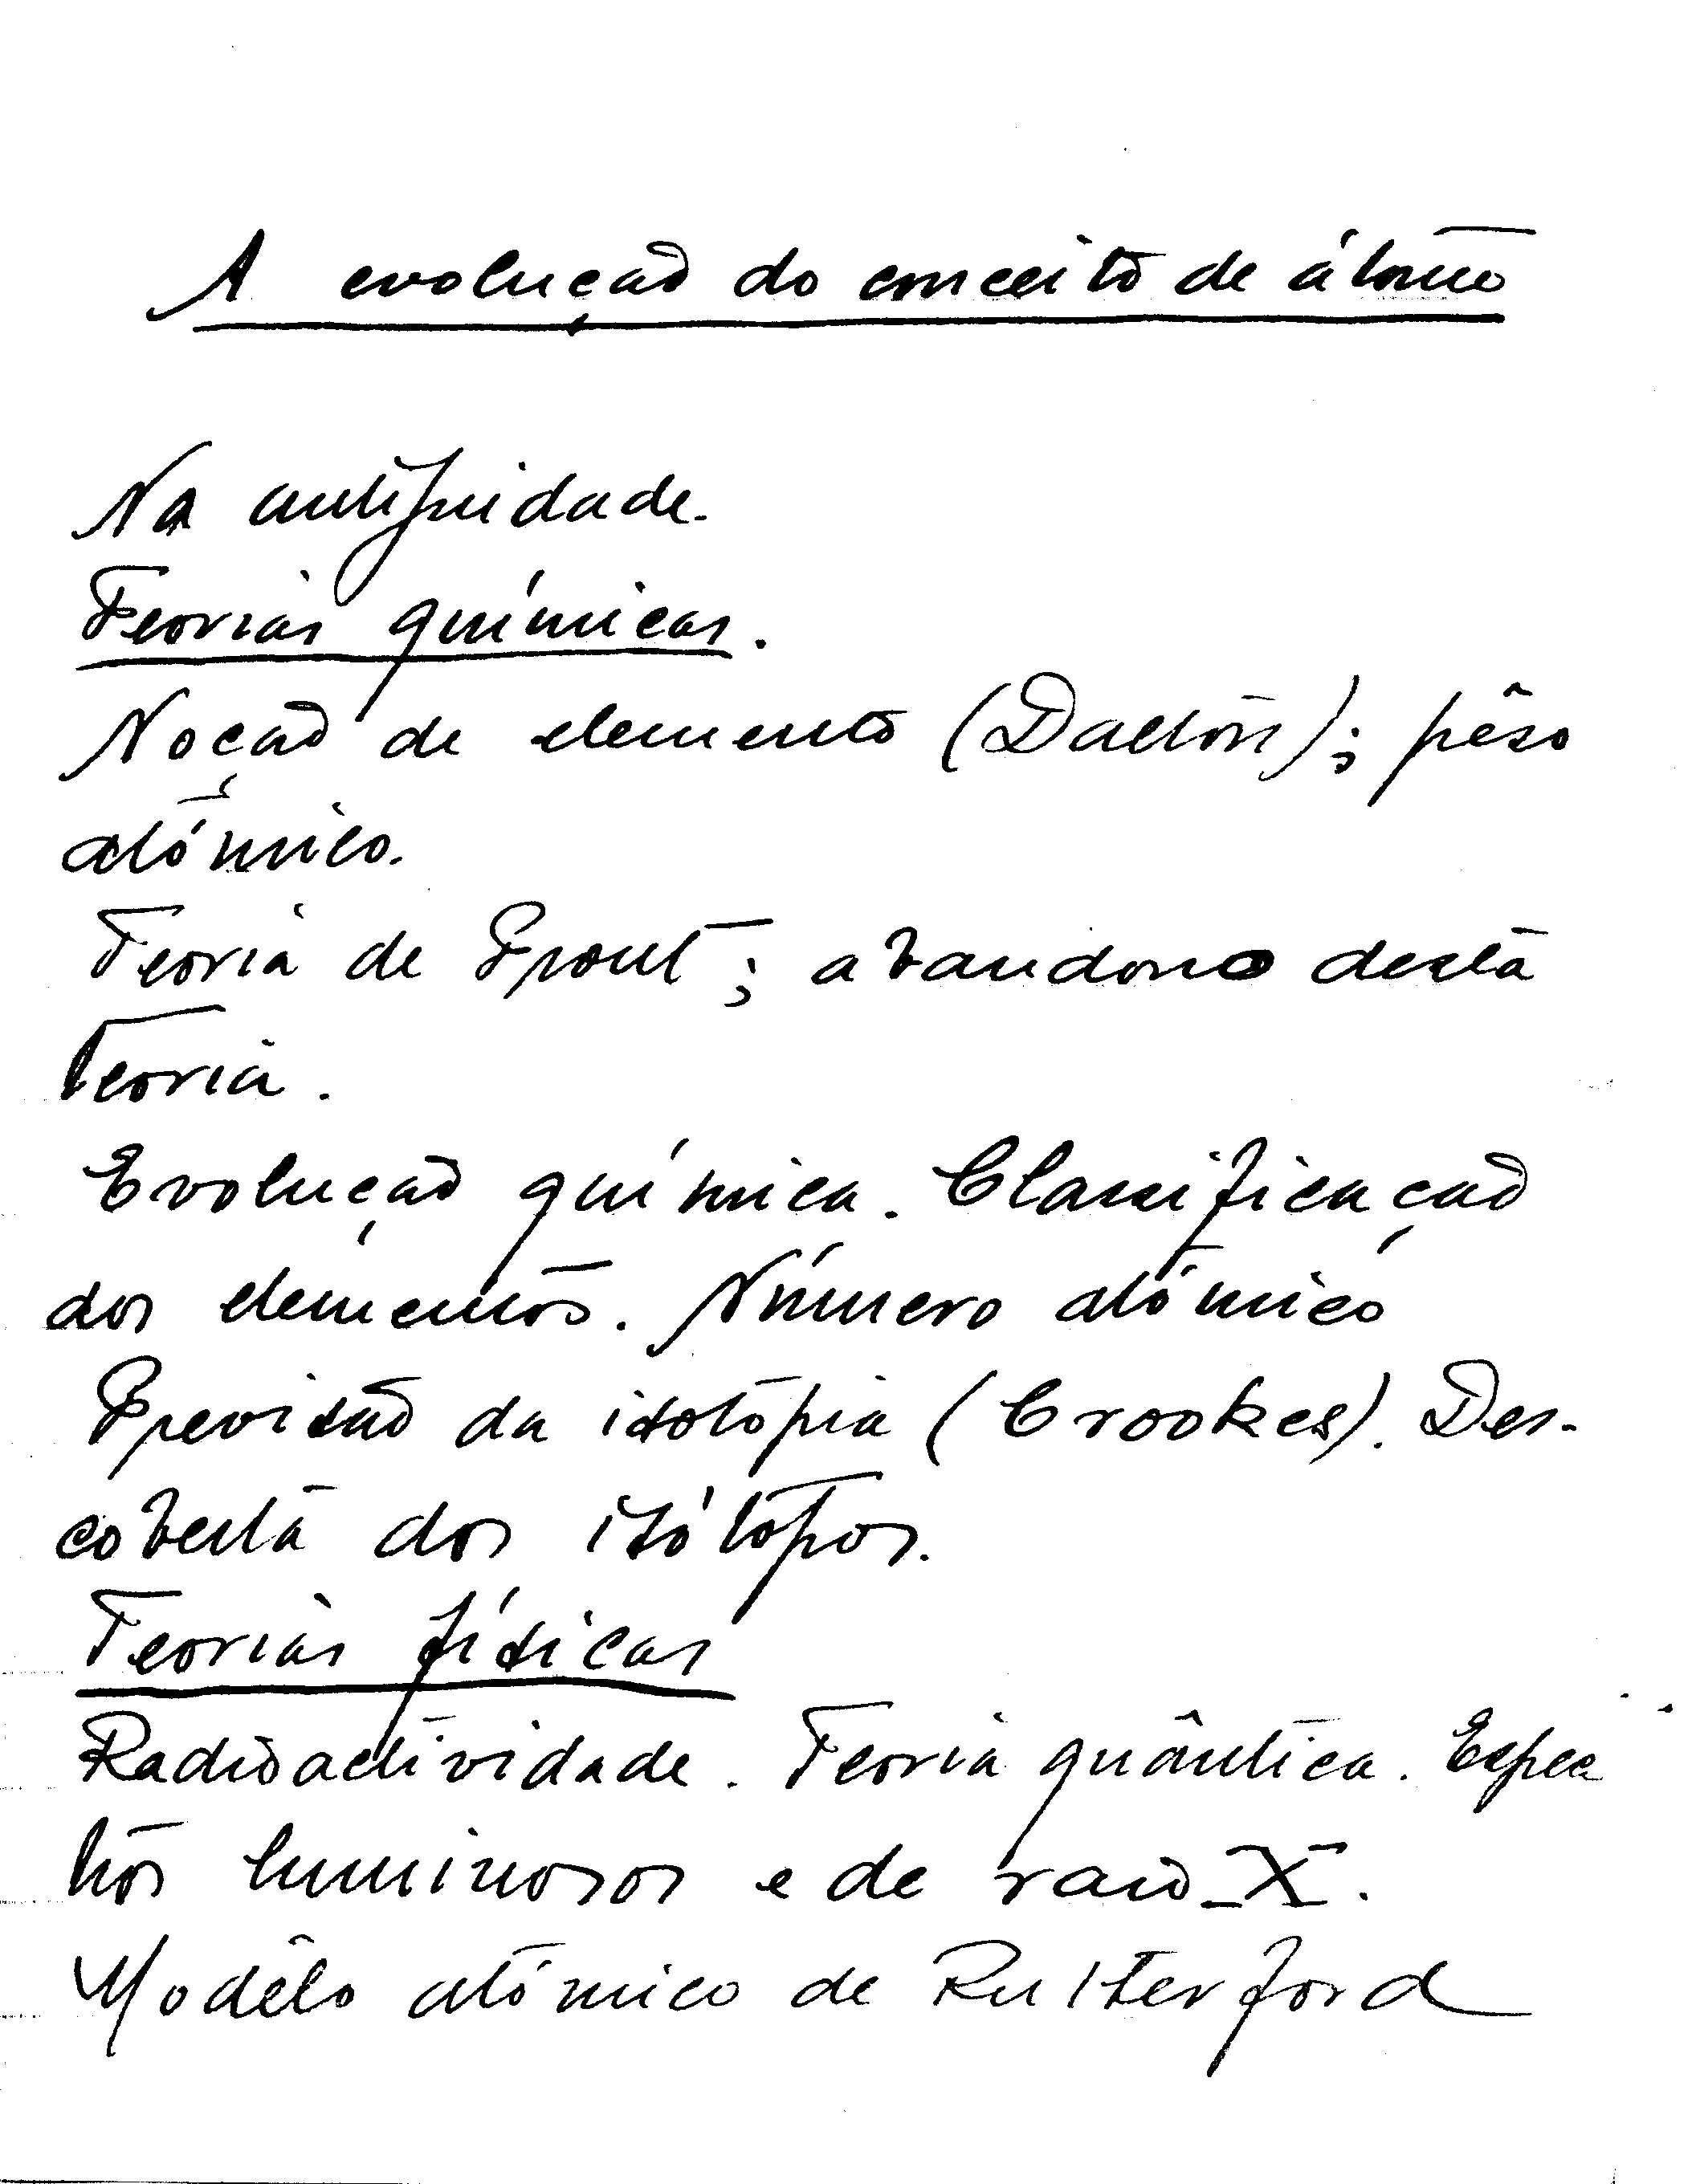 A evolução do conceito de átomo
Na antiguidade.
Teorias químicas.
Noção de elemento (Dalton); pêso
atómico.
Teoria de Prout; abandono desta
teoria.
Evolução química. Classificação
dos elementos. Número atómico
Previsão da isotopia (Crookes). Des-
coberta dos isótopos.
Teorias físicas
Radioactividade. Teoria quântica. Espec
tros luminosos e de raio-X.
Modêlo atómico de Rutherford